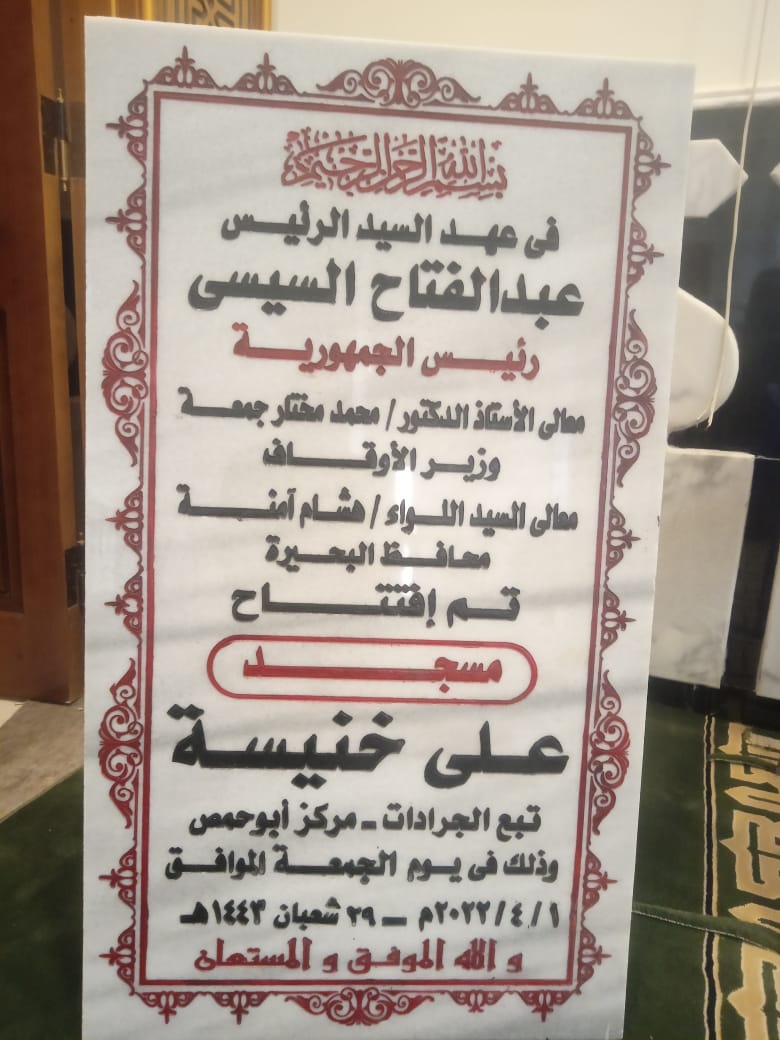 بسم الله الرحمن الرحيم
فى عهد السيد الرئيس
عبدالفتاح السيسى
رئيس الجمهورية
معالى الأستاذ الدكتور / محمد مختار جمعة
وزير الأوقاف
معالى السيد اللواء / هشام آمنة
محافظ البحيرة
تم إفتتاح
مسجد
على خنيسة
تبع الجرادات - مركز أبوحمص
وذلك فى يوم الجمعة الموافق
١ / ٤ / ٢٠٢٢م - ٢٩ شعبان ١٤٤٣هـ
و الله الموفق و المستعان